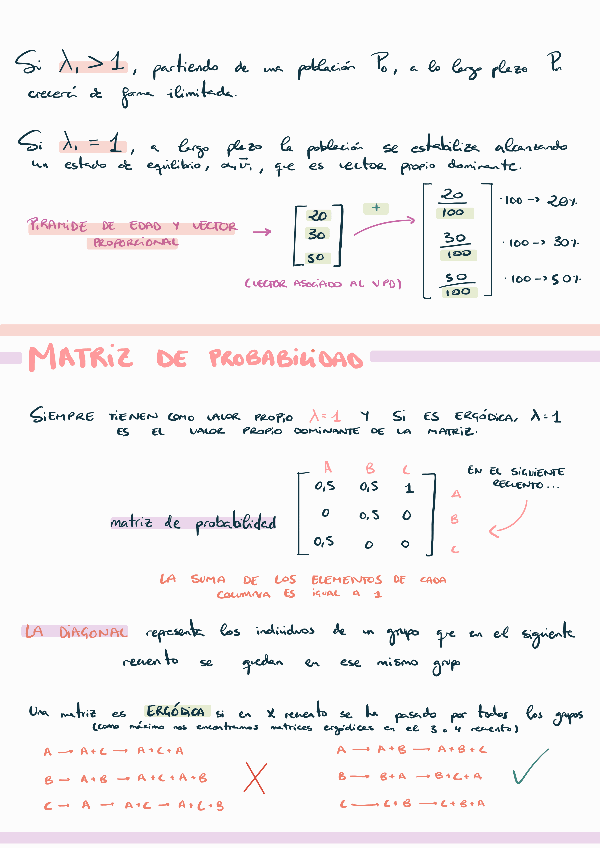 Si λ₁ > 1, partiendo de una población P₀, a lo largo plazo Pₙ
crecerá de forma ilimitada.
Si λ₁ = 1, a largo plazo la población se estabiliza alcanzando
un estado de equilibrio, α₁v̄₁, que es vector propio dominante.
PIRÁMIDE DE EDAD Y VECTOR
PROPORCIONAL
→ [20 30 50] + → [20/100 30/100 50/100]
·100 -> 20%
·100 -> 30%
·100 -> 50%
(VECTOR ASOCIADO AL VPD)
MATRIZ DE PROBABILIDAD
SIEMPRE TIENEN COMO VALOR PROPIO λ=1 Y SI ES ERGÓDICA, λ=1
ES EL VALOR PROPIO DOMINANTE DE LA MATRIZ.
A B C
0,5 0,5 1 A
matriz de probabilidad 0 0,5 0 B
0,5 0 0 C
EN EL SIGUIENTE
RECUENTO...
LA SUMA DE LOS ELEMENTOS DE CADA
COLUMNA ES IGUAL A 1
LA DIAGONAL representa los individuos de un grupo que en el siguiente
recuento se quedan en ese mismo grupo
Una matriz es ERGÓDICA si en X recuento se ha pasado por todos los grupos
(como máximo nos encontramos matrices ergódicas en el 3 o 4 recuento)
A → A+C → A+C+A
B → A+B → A+C+A+B
C → A → A+C → A+C+B
A → A+B → A+B+C
B → B+A → B+C+A
C → C+B → C+B+A